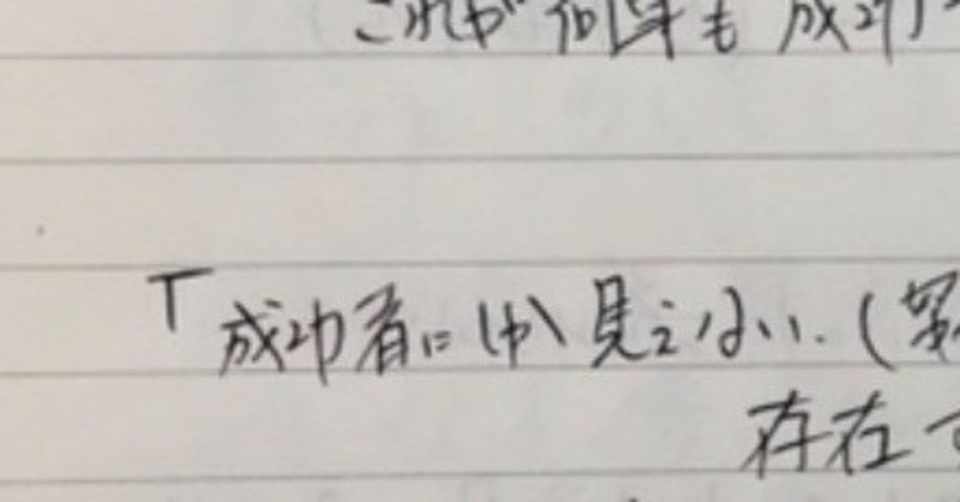 これが 何年も 成功
「成功者にしか見えない.(
存在